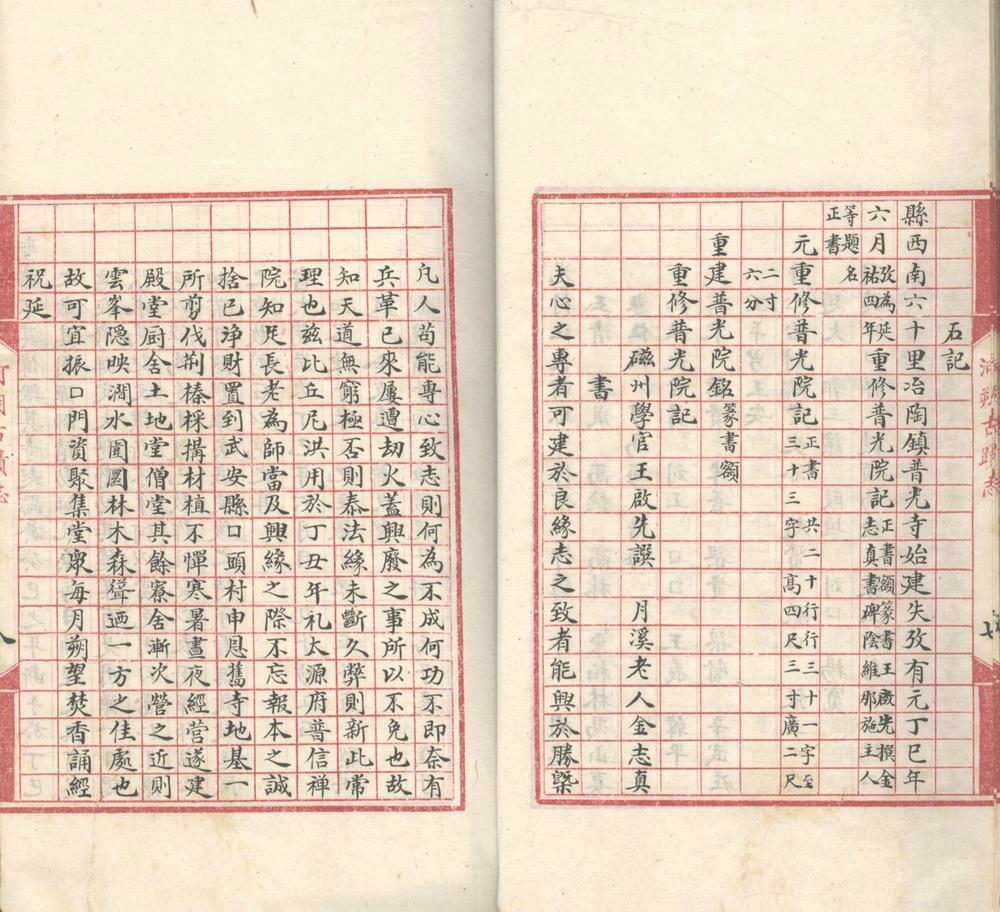 石記
縣西南六十里冶陶鎮普光寺始建失攷有元丁巳年
六月攷為延祐四年重修普光院記正書額篆書王啟先撰金志真書碑陰維那施主人
等題名正書
元重修普光院記正書共二十行行三十一字至三十三字高四尺三寸廣二尺
二寸六分
重建普光院銘篆書額
重修普光院記
磁州學官王啟先譔 月溪老人金志真
書
夫心之專者可建於良緣志之致者能興於勝槩
凡人苟能專心致志則何為不成何功不即奈有
兵革已來屢遭劫火蓋興廢之事所以不免也故
知天道無窮極否則泰法緣未斷久弊則新此常
理也茲比丘尼洪用於丁丑年礼太源府普信禅
院知足長老為師當及興緣之際不忘報本之誠
捨已浄財置到武安縣口頭村申恩舊寺地基一
所剪伐荆榛採搆材植不憚寒暑晝夜經營遂建
殿堂厨舍土地堂僧堂其餘寮舍漸次營之近則
雲峯隱映澗水圍圜林木森聳迺一方之佳處也
故可宜振口門資聚集堂衆每月朔望焚香誦經
祝延